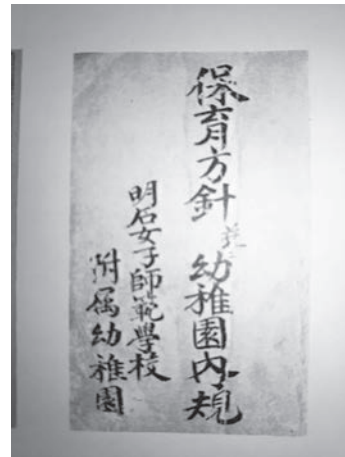 保育方針並幼稚園内規
明石女子師範學校
附属幼稚園